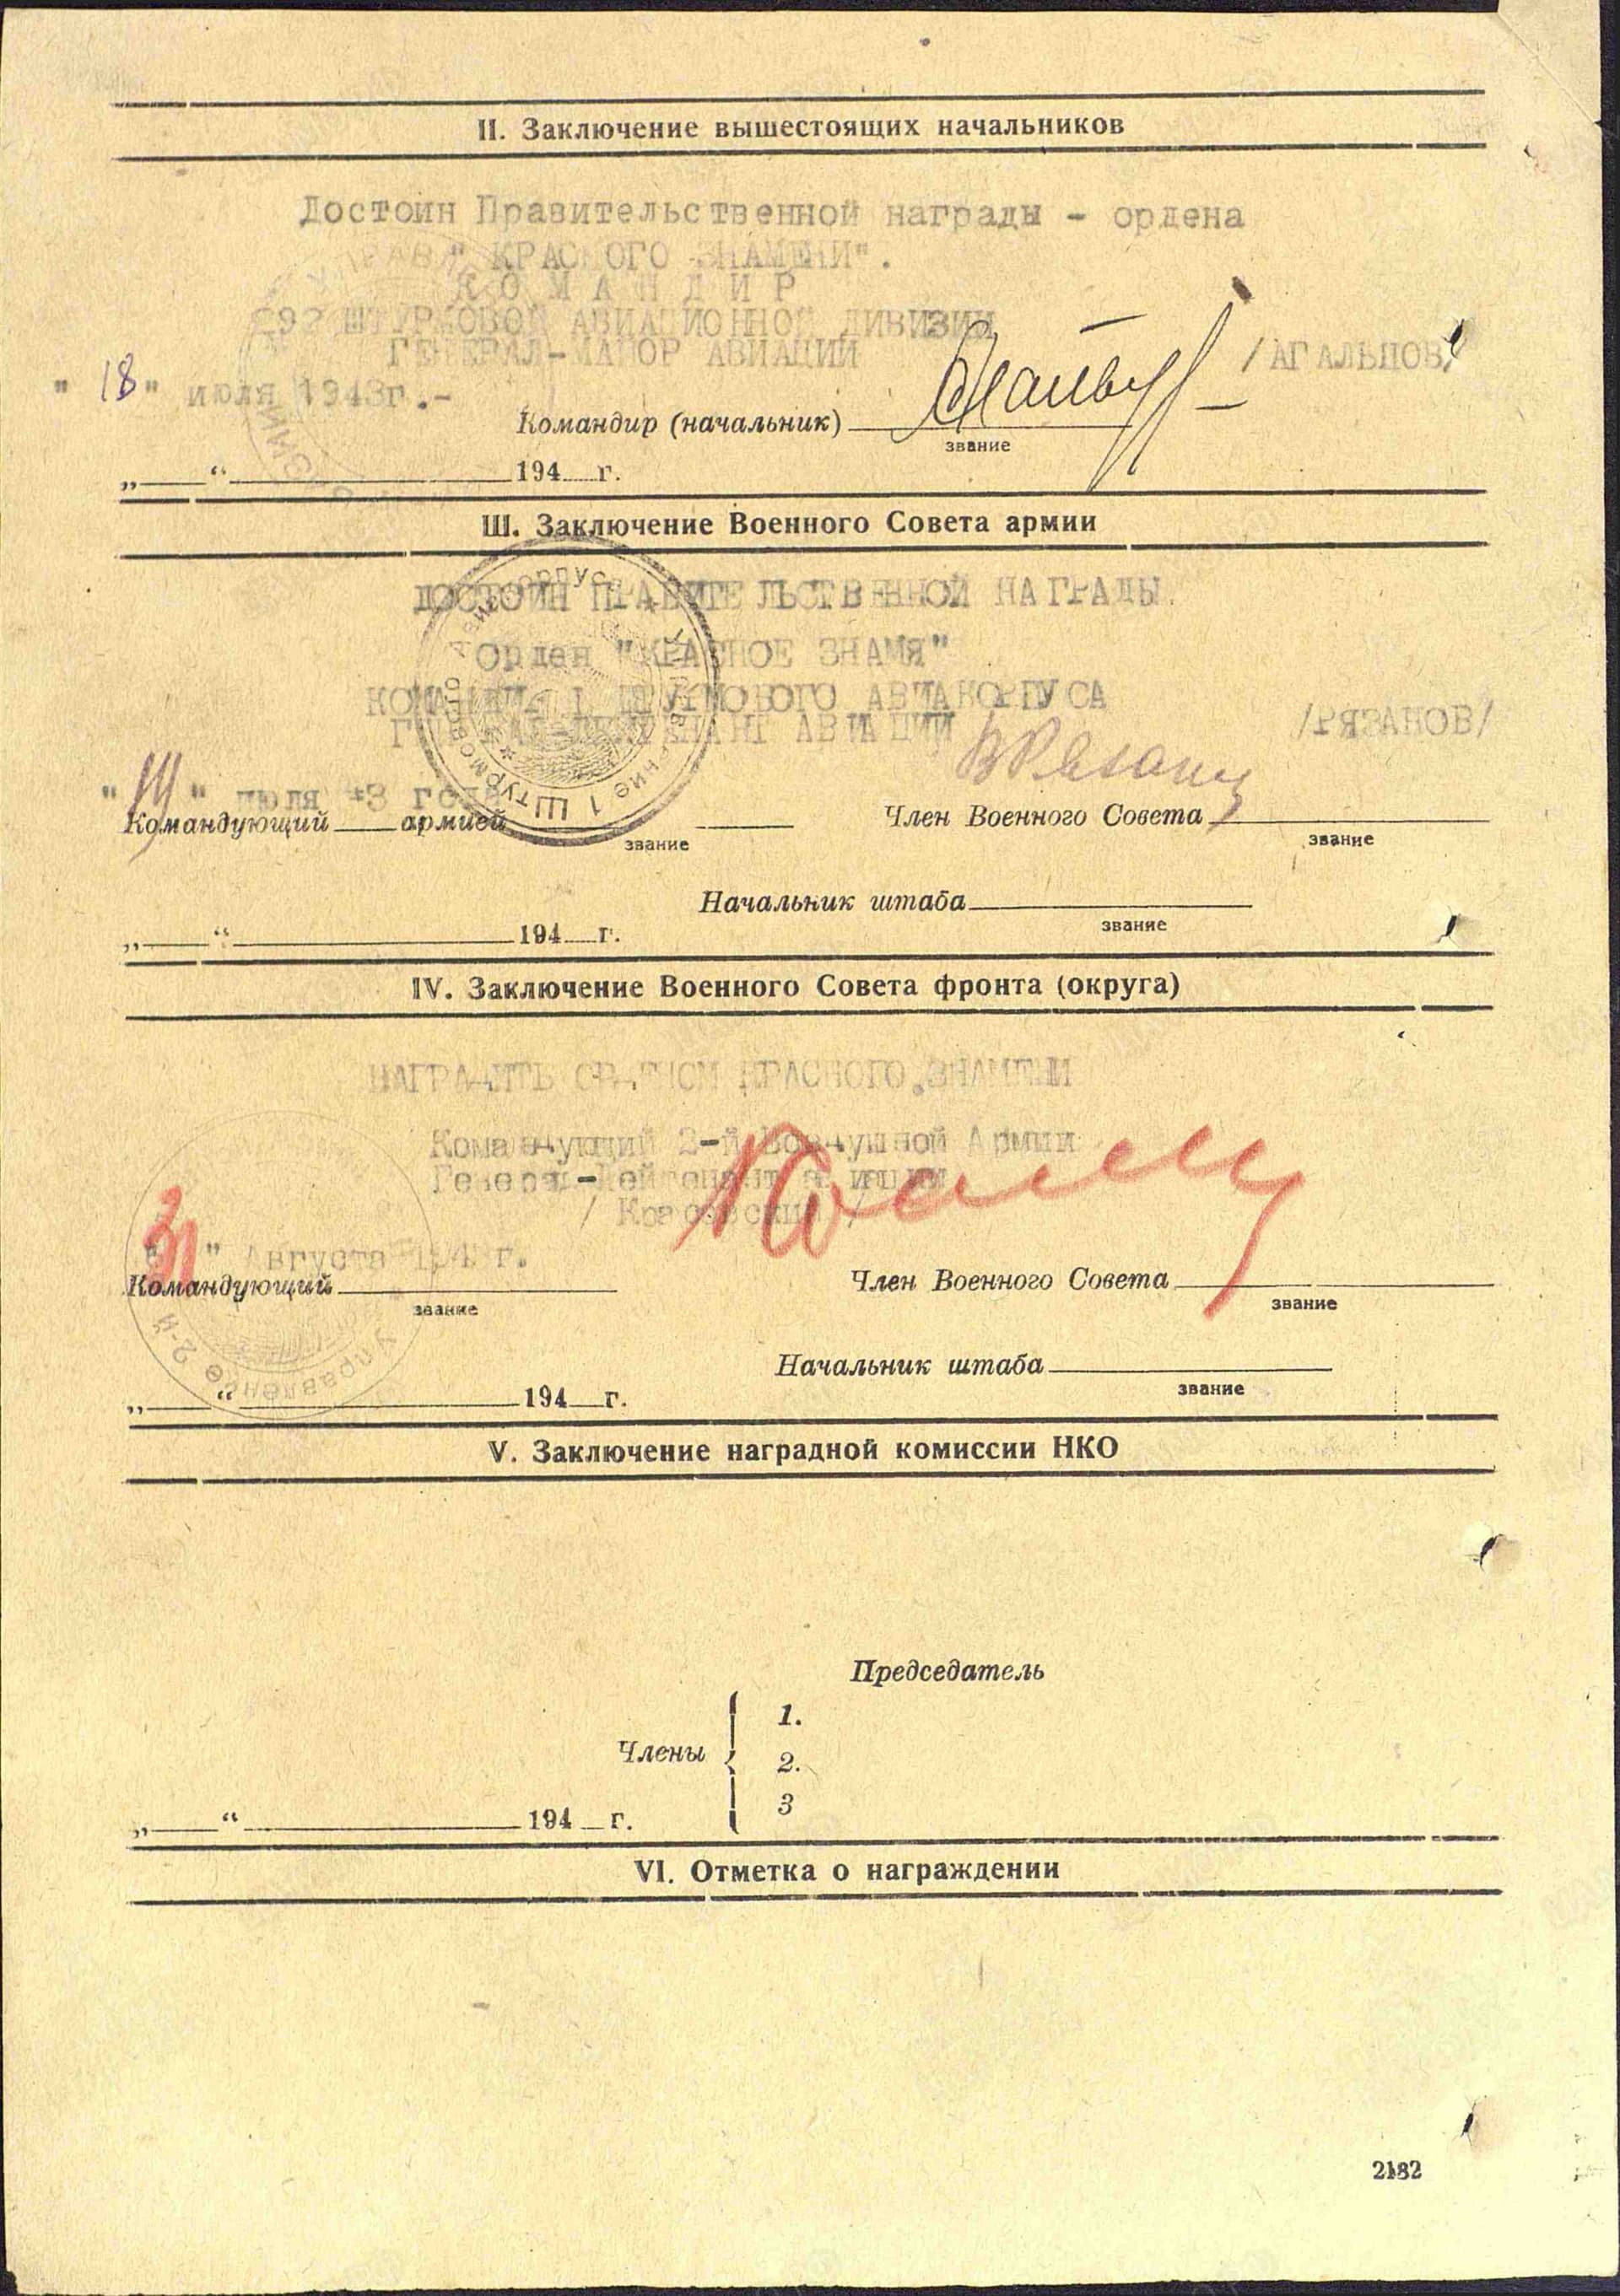 II. Заключение вышестоящих начальников
Достоин Правительственной награды - ордена
"КРАСНОГО ЗНАМЕНИ".
КОМАНДИР
ШТУРМОВОЙ АВИАЦИОННОЙ ДИВИЗИИ
ГЕНЕРАЛ-МАЙОР АВИАЦИИ
/АГАЛЬЦОВ/
"18" июля 1943г.-
Командир (начальник)
звание
„ “ 194 г.
III. Заключение Военного Совета армии
ДОСТОИН ПРАВИТЕЛЬСТВЕННОЙ НАГРАДЫ
Орден "КРАСНОЕ ЗНАМЯ"
КОМАНДИР 1 ШТУРМОВОГО АВИАКОРПУСА
ГЕНЕРАЛ-ЛЕЙТЕНАНТ АВИАЦИИ
/РЯЗАНОВ/
" " июля 43 года
Командующий армией
звание
Член Военного Совета
звание
Начальник штаба
звание
„ “ 194 г.
IV. Заключение Военного Совета фронта (округа)
НАГРАДИТЬ ОРДЕНОМ КРАСНОГО ЗНАМЕНИ
Командующий 2-й Воздушной Армии
Генерал-Лейтенант авиации
/ Красовский /
"31" Августа 194 г.
Командующий
звание
Член Военного Совета
звание
Начальник штаба
звание
„ “ 194 г.
V. Заключение наградной комиссии НКО
Председатель
Члены
1.
2.
3
„ “ 194 г.
VI. Отметка о награждении
2182